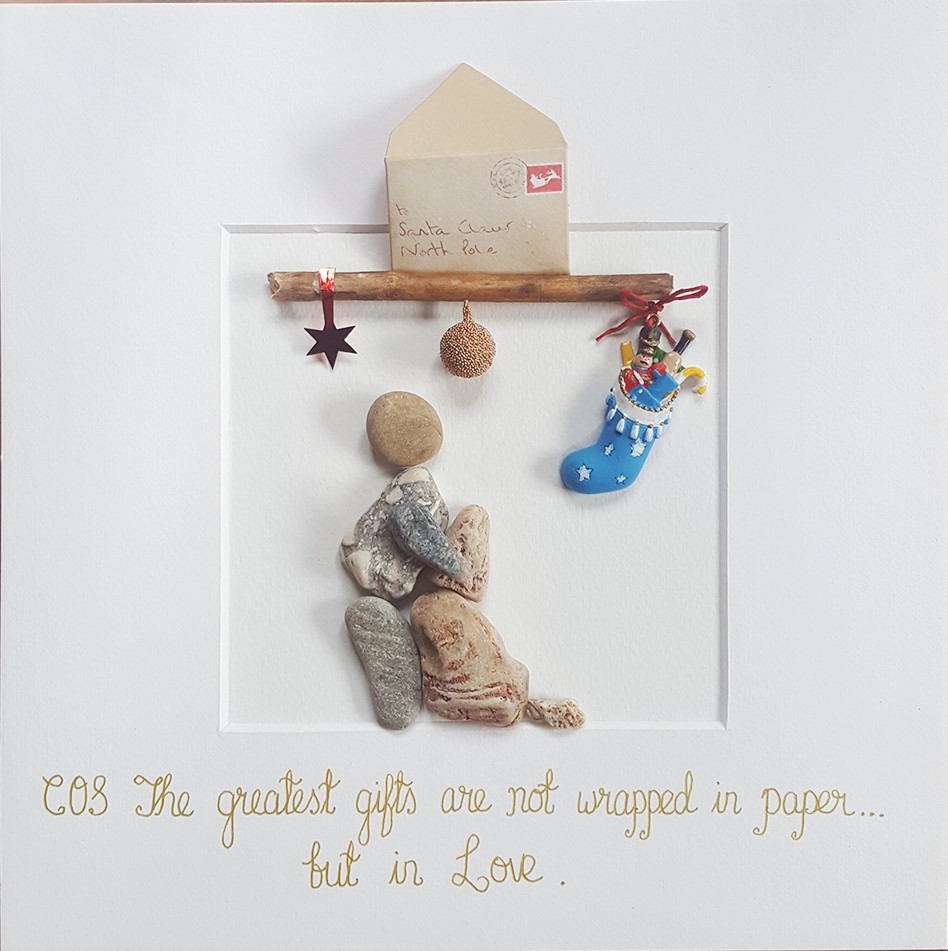 to
Santa Claus
North Pole
COS The greatest gifts are not wrapped in paper...
but in Love .